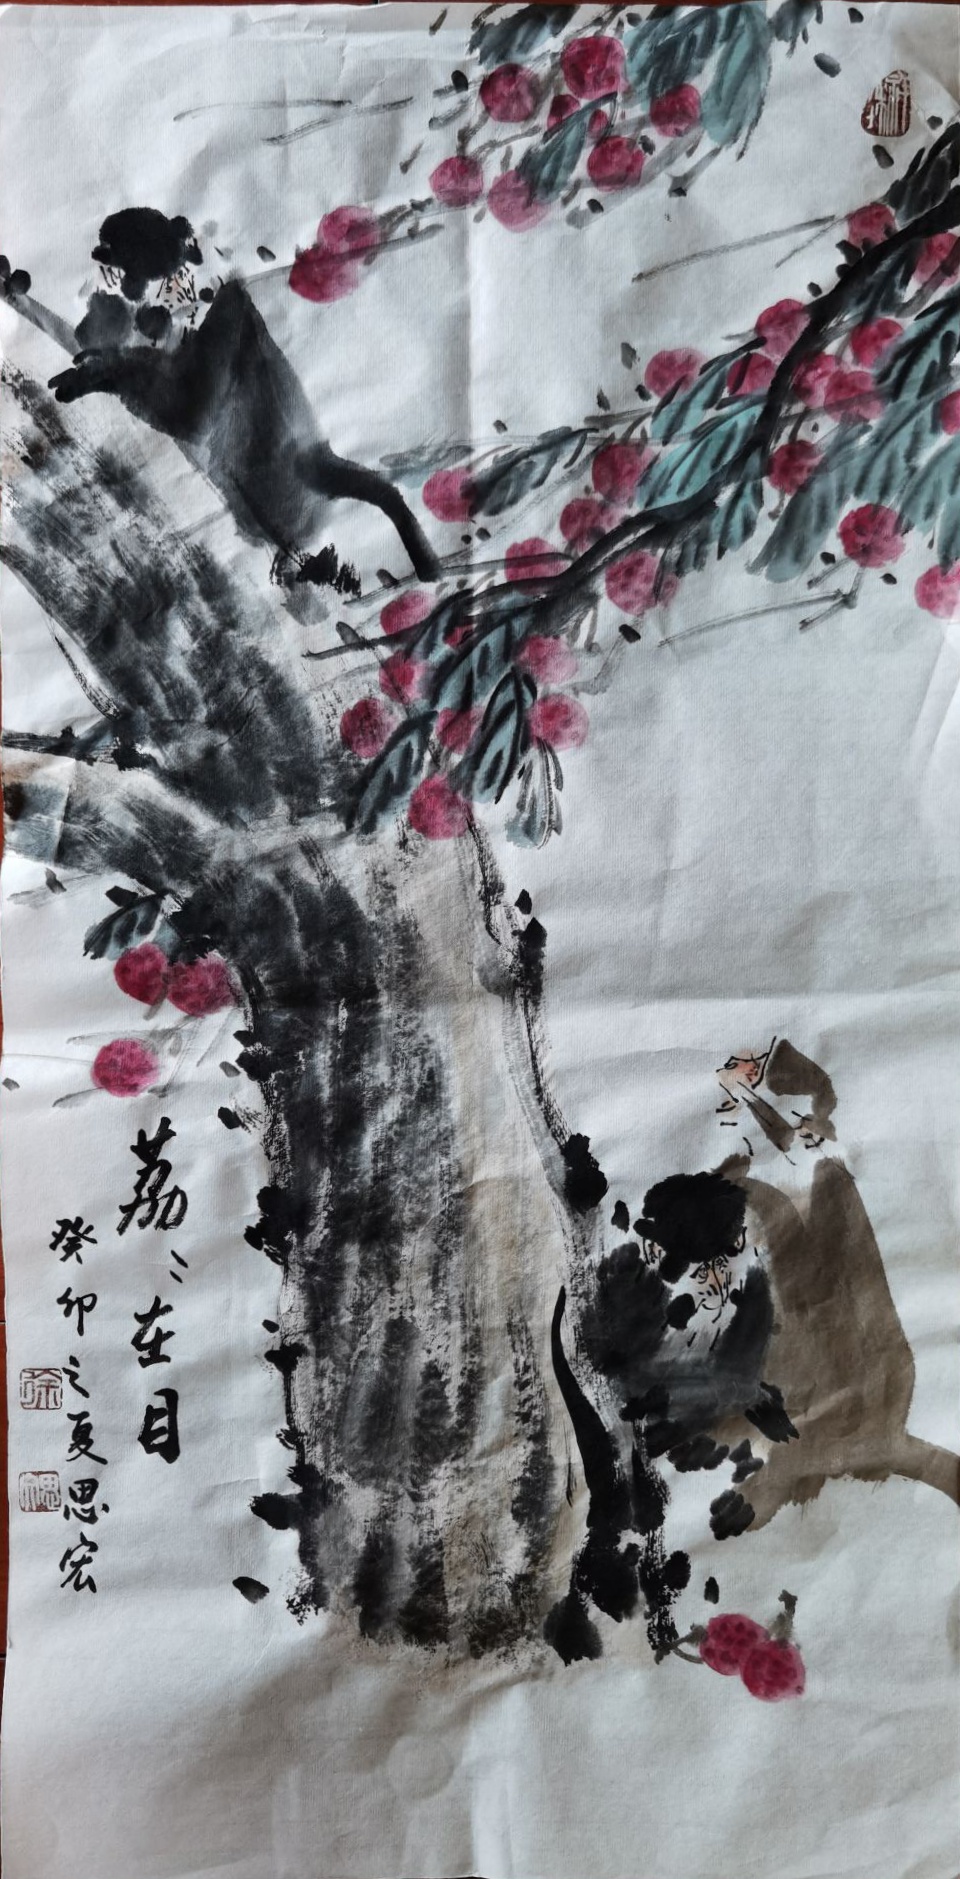 荔〻在目
癸卯之夏思宏
徐